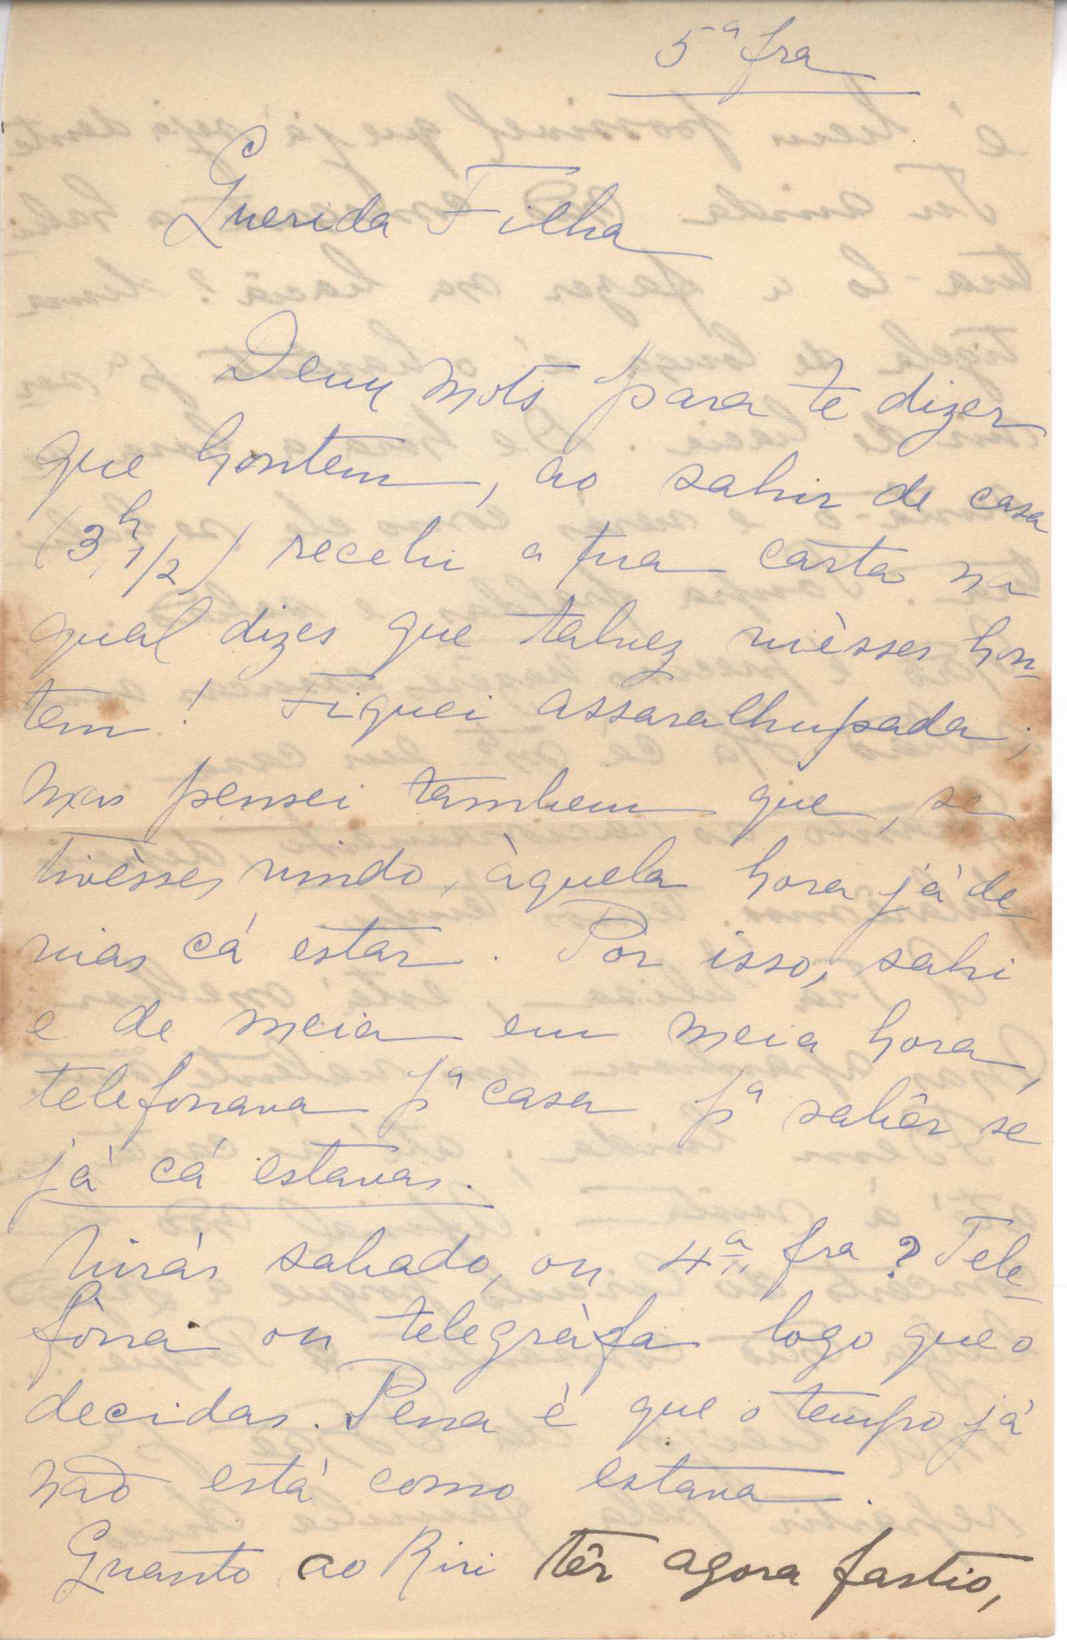 5ª fra
Querida Filha
Deux mots para te dizer
que hontem, ao sahir de casa
(3,h 1/2) recebi a tua carta na
qual dizes que talvez vièsses hon-
tem! Fiquei assaralhupada;
mas pensei tambem que, se
tivèsses vindo, àquela hora já de-
vias cá estar. Por isso, sahi
e de meia em meia hora,
telefonava pª casa pª sabêr se
já cá estavas.
Virás sabado, ou 4ª fra? Tele-
fòna ou telegràfa logo que o
decidas. Pena è que o tempo já
não està como estava.
Quanto ao Riri têr agora fastio,